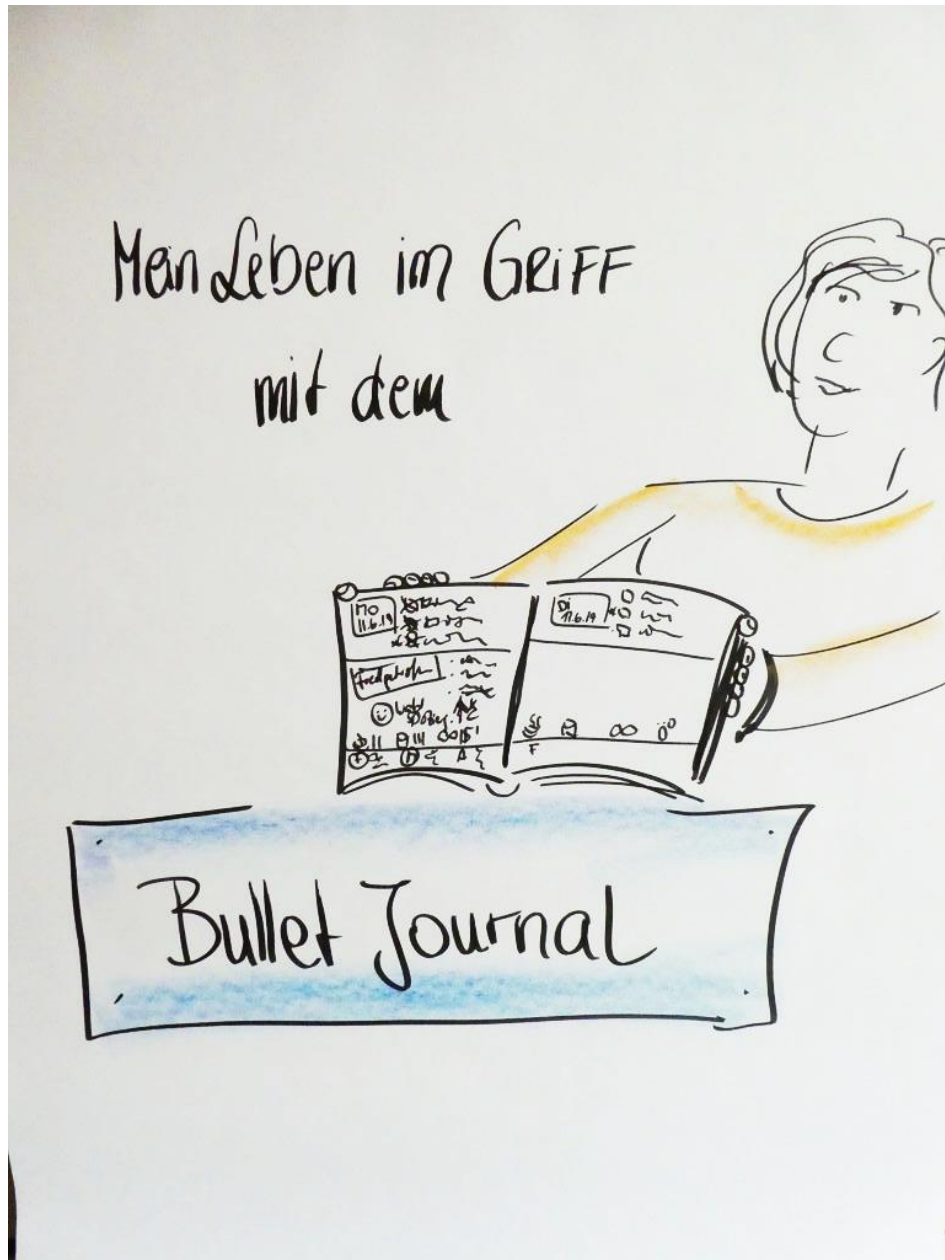 Mein Leben im GRiFF
mit dem
Mo
11.6.19
Di
11.6.19
F
Bullet Journal